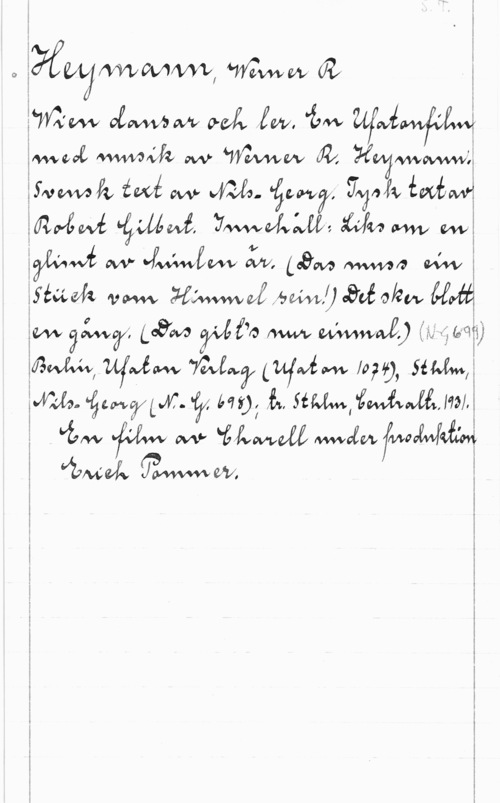 S. T.
Heymann, Werner R
Wien dansar och ler. En Ufatonfilm
med musik av Werner R. Heymann.
Svensk text av Nils-Georg. Tysk text av
Robert Gilbert. Innehåll: Liksom en
glimt av himlen är. (Das muss ein
Stück vom Himmel sein!) Det sker blott
en gång. (Das gibt's nur einmal.) (N-G 699)
Berlin, Ufaton Verlag (Ufaton 1074), Sthlm,
Nils-Georg (N.-G. 698); tr. Sthlm, Centraltr. 1931.
En film av Charell under produktion
Erich Pommer.